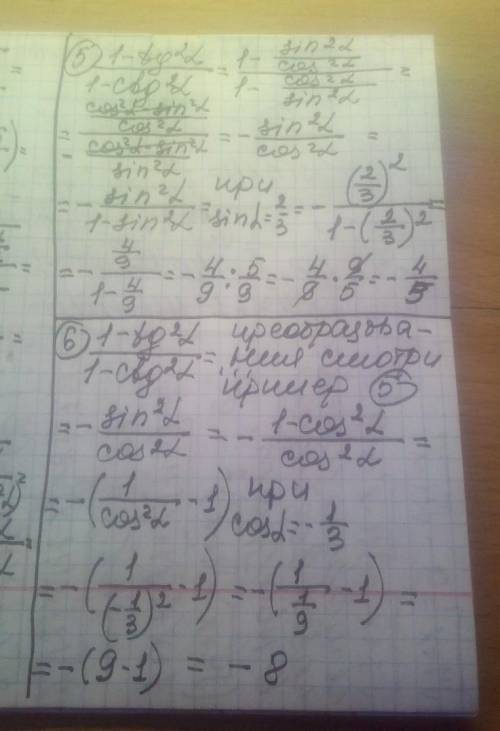 5) (1-tg²α)/(1-ctg²α) = (1- sin²α/cos²α)/(1- cos²α/sin²α) =
= ((cos²α-sin²α)/cos²α)/(-(cos²α-sin²α)/sin²α) = - sin²α/cos²α =
= - sin²α/(1-sin²α) = при sinα=2/3 = - (2/3)²/(1-(2/3)²) =
= - (4/9)/(1-4/9) = - 4/9 : 5/9 = - 4/9 · 9/5 = - 4/5
6) (1-tg²α)/(1-ctg²α) = преобразова-
ния смотри
пример 5
= - sin²α/cos²α = - (1-cos²α)/cos²α =
= -(1/cos²α -1) при cosα=-1/3
= -(1/(-1/3)² -1) = -(1/(1/9) -1) =
= -(9-1) = -8